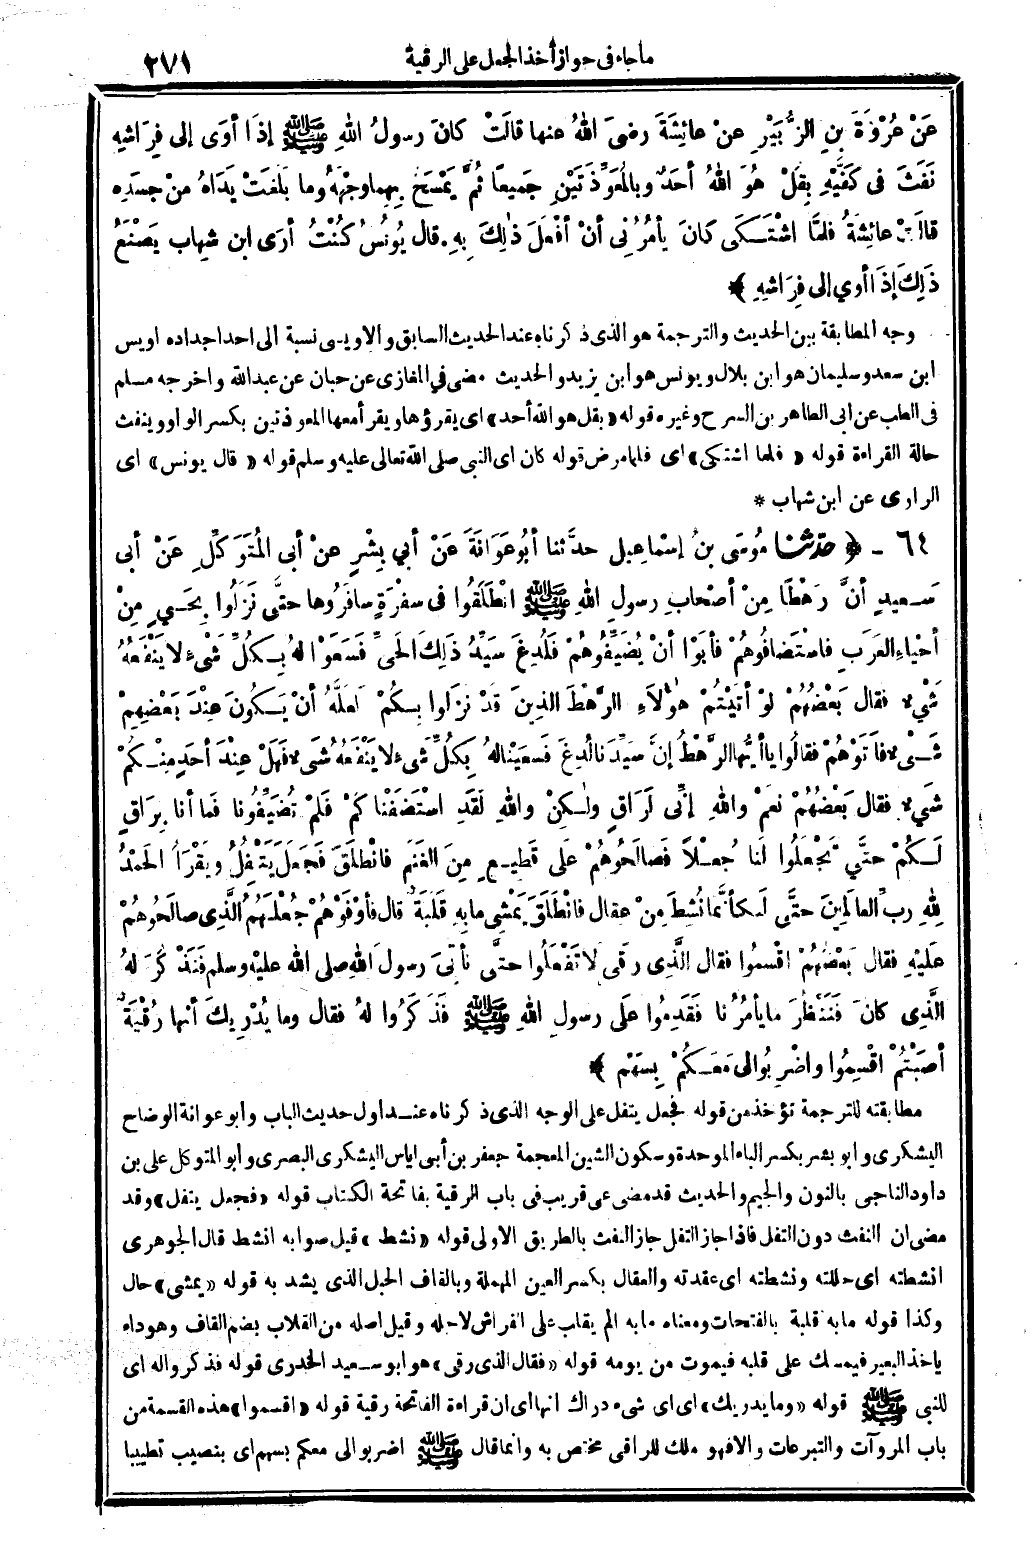 ماجاء فى جواز أخذ الجعل على الرقية ٢٧١
عَنْ عُرْوَةَ بنِ الزُّبَيْرِ عنْ عائِشَةَ رضىَ اللهُ عنها قالَتْ كانَ رسولُ اللهِ ﷺ إذَا أوَى إلى فِرَاشِهِ
نَفَثَ فى كَفَّيْهِ بِقُلْ هُوَ اللهُ أحَدٌ وبالمُعَوِّذَتَيْنِ جَمِيعاً ثُمَّ يَمْسَحُ بِهِما وجْهَهُ وما بَلَغَتْ يَدَاهُ مِنْ جسَدِهِ
قالَتْ عائِشَةُ فلمَّا اشْتَكَى كانَ يأمُرُنِى أنْ أفْعَلَ ذٰلِكَ بِهِ . قال يُونُسُ كُنْتُ أرَى ابنَ شِهابٍ يَصْنَعُ
ذٰلِكَ إذَا أوي إلى فِرَاشِهِ ﴾ *
وجه المطابقة بين الحديث والترجمة هو الذى ذكرناه عند الحديث السابق والاويسى نسبة الى احد اجداده اويس
ابن سعد وسليمان هو ابن بلال ويونس هو ابن يزيد والحديث مضى في المغازى عن حبان عن عبدالله واخرجه مسلم
فى الطب عن ابى الطاهر بن السرح وغيره قوله «بقل هو الله أحد» اى يقرؤها ويقرأ معها المعوذتين بكسر الواو وينفث
حالة القراءة قوله « فلما اشتكى» اى فلما مرض قوله كان اى النبي صلى الله تعالى عليه وسلم قوله « قال يونس» اى
الراوى عن ابن شهاب *
٦٤ - ﴿ حدثنا مُوسَى بنُ إسْماعِيلَ حدَّثنا أبُو عَوَانَةَ عَنْ أبي بِشْرٍ عنْ أبى المُتَوَكِّلِ عَنْ أبى
سَعِيدٍ أنَّ رَهْطاً مِنْ أصْحابِ رسولِ اللهِ ﷺ انْطَلَقُوا فى سفْرَةٍ سافَرُوها حتَّى نَزَلُوا بِحَىٍّ مِنْ
أحْياءِ العَرَبِ فاسْتَضافُوهُمْ فأبَوْا أنْ يُضَيِّفُوهُمْ فَلُدِغَ سَيِّدُ ذٰلِكَ الحَىِّ فَسَعَوْا لهُ بِكلِّ شَىْءٍ لا يَنْفَعُهُ
شَىْءٌ فقال بَعْضُهُمْ لوْ أتَيْتُمْ هٰؤُلاَءِ الرَّهْطَ الذِينَ قَدْ نزَلُوا بِكُمْ لعَلَّهُ أنْ يَكُونَ عِنْدَ بَعْضِهِمْ
شَىْءٌ فأتَوْهُمْ فقالُوا ياأيُّها الرَّهْطُ إنَّ سَيِّدَنا لُدِغَ فَسعَيْنا لهُ بِكُلِّ شَىْءٍ لا يَنْفَعُهُ شَىْءٌ فَهَلْ عِنْدَ أحَدٍ مِنْكُمْ
شَىْءٌ فقال بَعْضُهُمْ نعَمْ واللهِ إنِّى لَرَاقٍ ولٰكِنْ واللهِ لَقَدِ اسْتَضَفْناكُمْ فلَمْ تُضَيِّفُونا فَما أنا بِرَاقٍ
لَكُمْ حتَّى تَجْعَلُوا لَنا جُعْلاً فَصالَحُوهُمْ علَى قَطِيعٍ مِنَ الغَنَمِ فانْطَلَقَ فَجَعَلَ يَتْفِلُ ويَقْرَأُ الحَمْدُ
لِلهِ رَبِّ العالَمِينَ حتَّى لَكأنَّما نُشِطَ مِنْ عِقالٍ فانْطَلَقَ يَمْشِى ما بِهِ قَلَبَةٌ قال فأوْفَوْهُمْ جُعْلَهُمُ الَّذِى صالَحُوهُمْ
علَيْهِ فقال بَعْضُهُمْ اقْسِمُوا فقال الَّذِى رقَى لا تَفْعَلُوا حتَّى نأتِىَ رسولَ اللهِ صلى الله عليه وسلم فَنَذْكُرَ لهُ
الَّذِى كانَ فَنَنْظُرَ ما يأمُرُنا فَقَدِمُوا علَى رسولِ اللهِ ﷺ فَذَكَرُوا لهُ فقال وما يُدْرِيكَ أنَّها رُقْيَةٌ
أصَبْتُمْ اقْسِمُوا واضْرِبُوا لى مَعَكُمْ بِسَهْمٍ ﴾ *
مطابقته للترجمة تؤخذ من قوله فجعل يتفل على الوجه الذى ذكرناه عند اول حديث الباب وأبو عوانة الوضاح
اليشكرى وابو بشر بكسر الباء الموحدة وسكون الشين المعجمة جعفر بن أبى اياس اليشكرى البصرى وابو المتوكل على بن
داود الناجى بالنون والجيم والحديث قد مضى عن قريب فى باب الرقية بفاتحة الكتاب قوله «فجعل يتفل» وقد
مضى ان النفث دون التفل فاذا جاز التفل جاز النفث بالطريق الاولى قوله «نشط» قيل صوابه انشط قال الجوهرى
انشطته اى حللته ونشطته اى عقدته والعقال بكسر العين المهملة وبالقاف الحبل الذى يشد به قوله «يمشى» حال
وكذا قوله ما به قلبة بالفتحات ومعناه ما به الم يقلب على الفراش لاجله وقيل اصله من القلاب بضم القاف وهو داء
ياخذ البعير فيمسك على قلبه فيموت من يومه قوله «فقال الذى رقى» هو ابو سعيد الخدرى قوله فذكروا له اى
للنبى ﷺ قوله «وما يدريك» اى اى شىء دراك انها اى ان قراءة الفاتحة رقية قوله «اقسموا» هذه القسمة من
باب المروآت والتبرعات والا فهو ملك للراقى مختص به وانما قال ﷺ اضربوا لى معكم بسهم اى بنصيب تطييبا